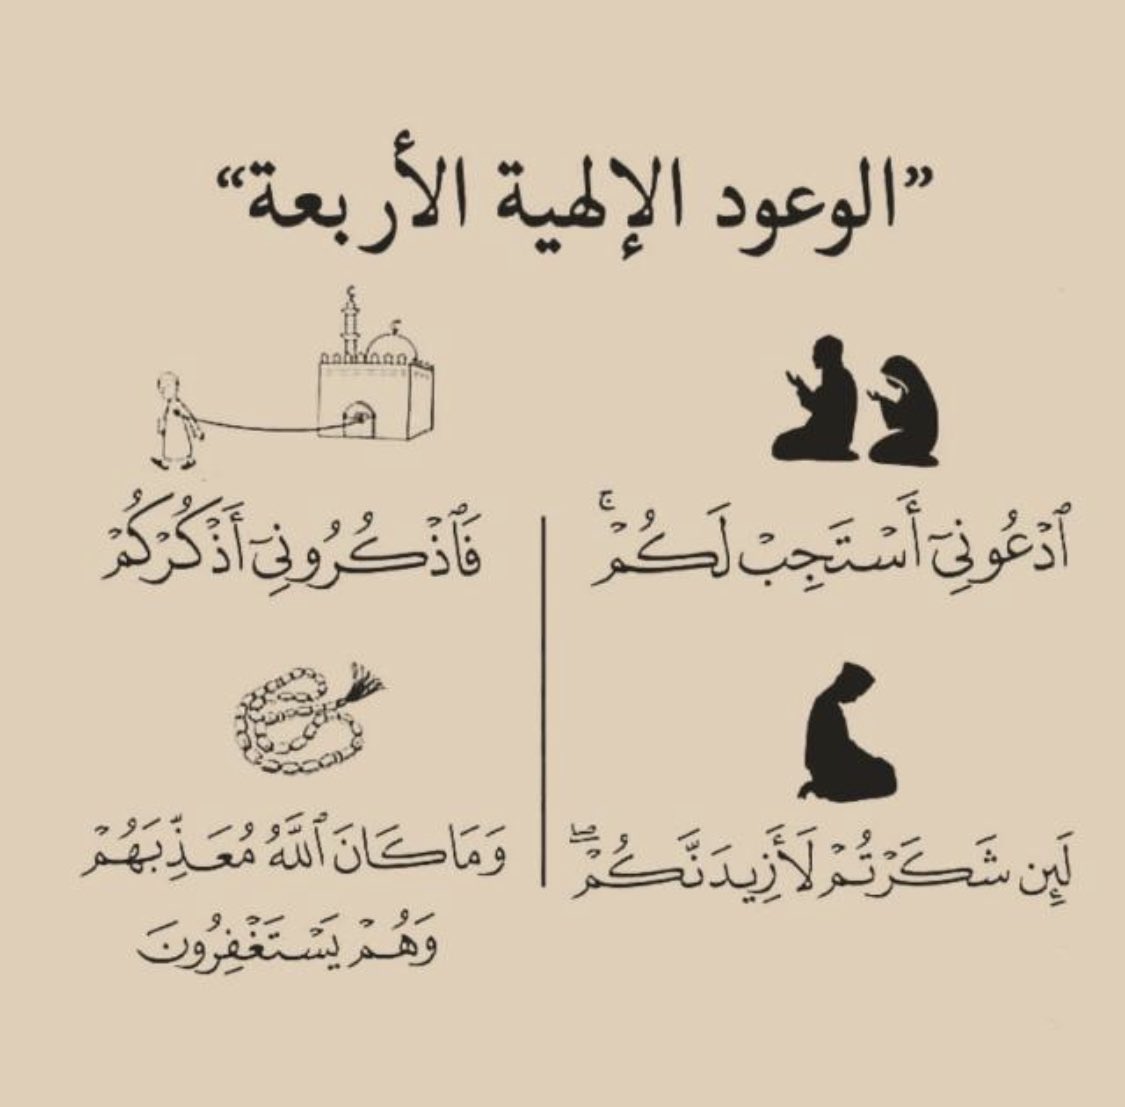 ”الوعود الإلهية الأربعة“
ٱدۡعُونِيٓ أَسۡتَجِبۡ لَكُمۡۚ
فَٱذۡكُرُونِيٓ أَذۡكُرۡكُمۡ
لَئِن شَكَرۡتُمۡ لَأَزِيدَنَّكُمۡۖ
وَمَا كَانَ ٱللَّهُ مُعَذِّبَهُمۡ
وَهُمۡ يَسۡتَغۡفِرُونَ